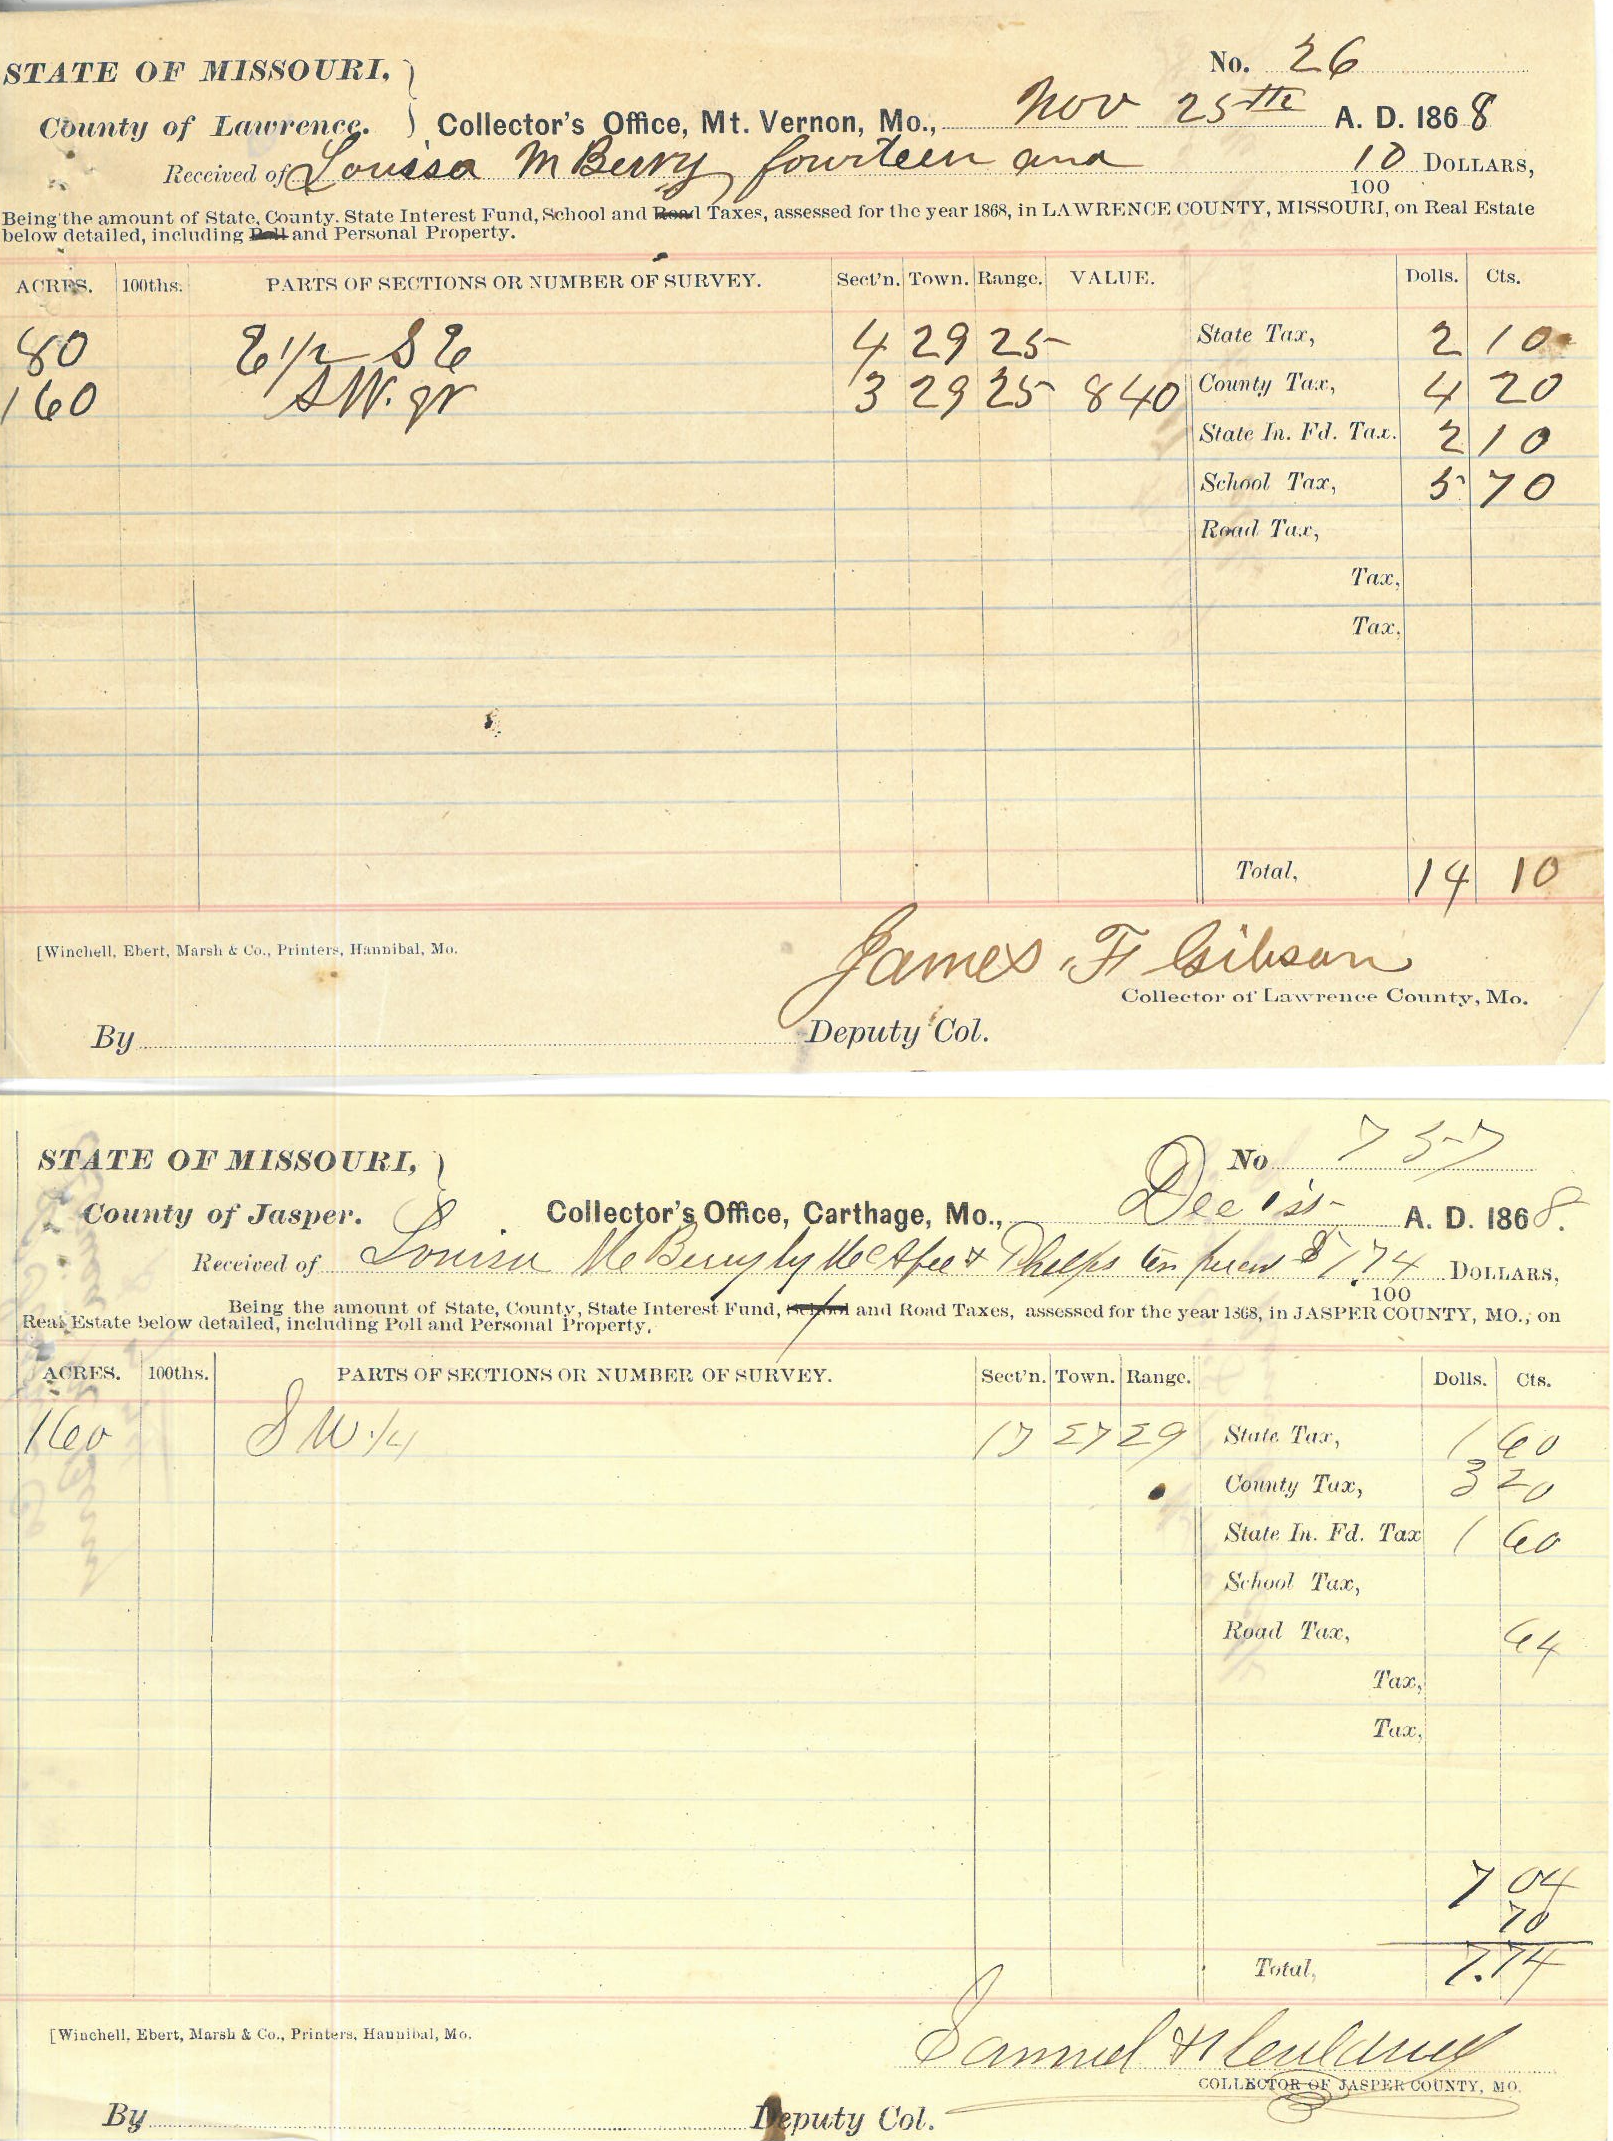 STATE OF MISSOURI, No. 26
County of Lawrence. Collector's Office, Mt. Vernon, Mo., Nov 25th A. D. 1868
Received of Louisa M Berry fourteen and 10/100 DOLLARS,
Being the amount of State, County. State Interest Fund, School and Road Taxes, assessed for the year 1868, in LAWRENCE COUNTY, MISSOURI, on Real Estate
below detailed, including Poll and Personal Property.
ACRES. 100ths. PARTS OF SECTIONS OR NUMBER OF SURVEY. Sect'n. Town. Range. VALUE. Dolls. Cts.
80 E 1/2 S E 4 29 25 State Tax, 2 10
160 S W. qr 3 29 25 840 County Tax, 4 20
State In. Fd. Tax. 2 10
School Tax, 5 70
Road Tax,
Tax,
Tax,
Total, 14 10
[Winchell, Ebert, Marsh & Co., Printers, Hannibal, Mo.
James F Gibson
Collector of Lawrence County, Mo.
By Deputy Col.
STATE OF MISSOURI, No 757
County of Jasper. Collector's Office, Carthage, Mo., Dec 1st A. D. 1868.
Received of Louisa M Berry by McAfee & Phelps $7.74/100 DOLLARS,
Being the amount of State, County, State Interest Fund, School and Road Taxes, assessed for the year 1868, in JASPER COUNTY, MO., on
Real Estate below detailed, including Poll and Personal Property.
ACRES. 100ths. PARTS OF SECTIONS OR NUMBER OF SURVEY. Sect'n. Town. Range. Dolls. Cts.
160 S W 1/4 17 27 29 State Tax, 1 60
County Tax, 3 20
State In. Fd. Tax 1 60
School Tax,
Road Tax, 64
Tax,
Tax,
7 04
70
Total, 7.74
[Winchell, Ebert, Marsh & Co., Printers, Hannibal, Mo.
Samuel H Caldwell
COLLECTOR OF JASPER COUNTY, MO.
By Deputy Col.